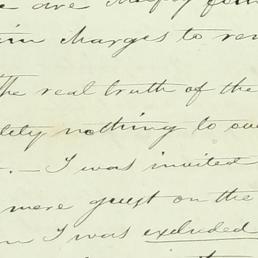 are
charges to
The real truth of the
nothing to
. — I was invited
mere guest on the
I was excluded